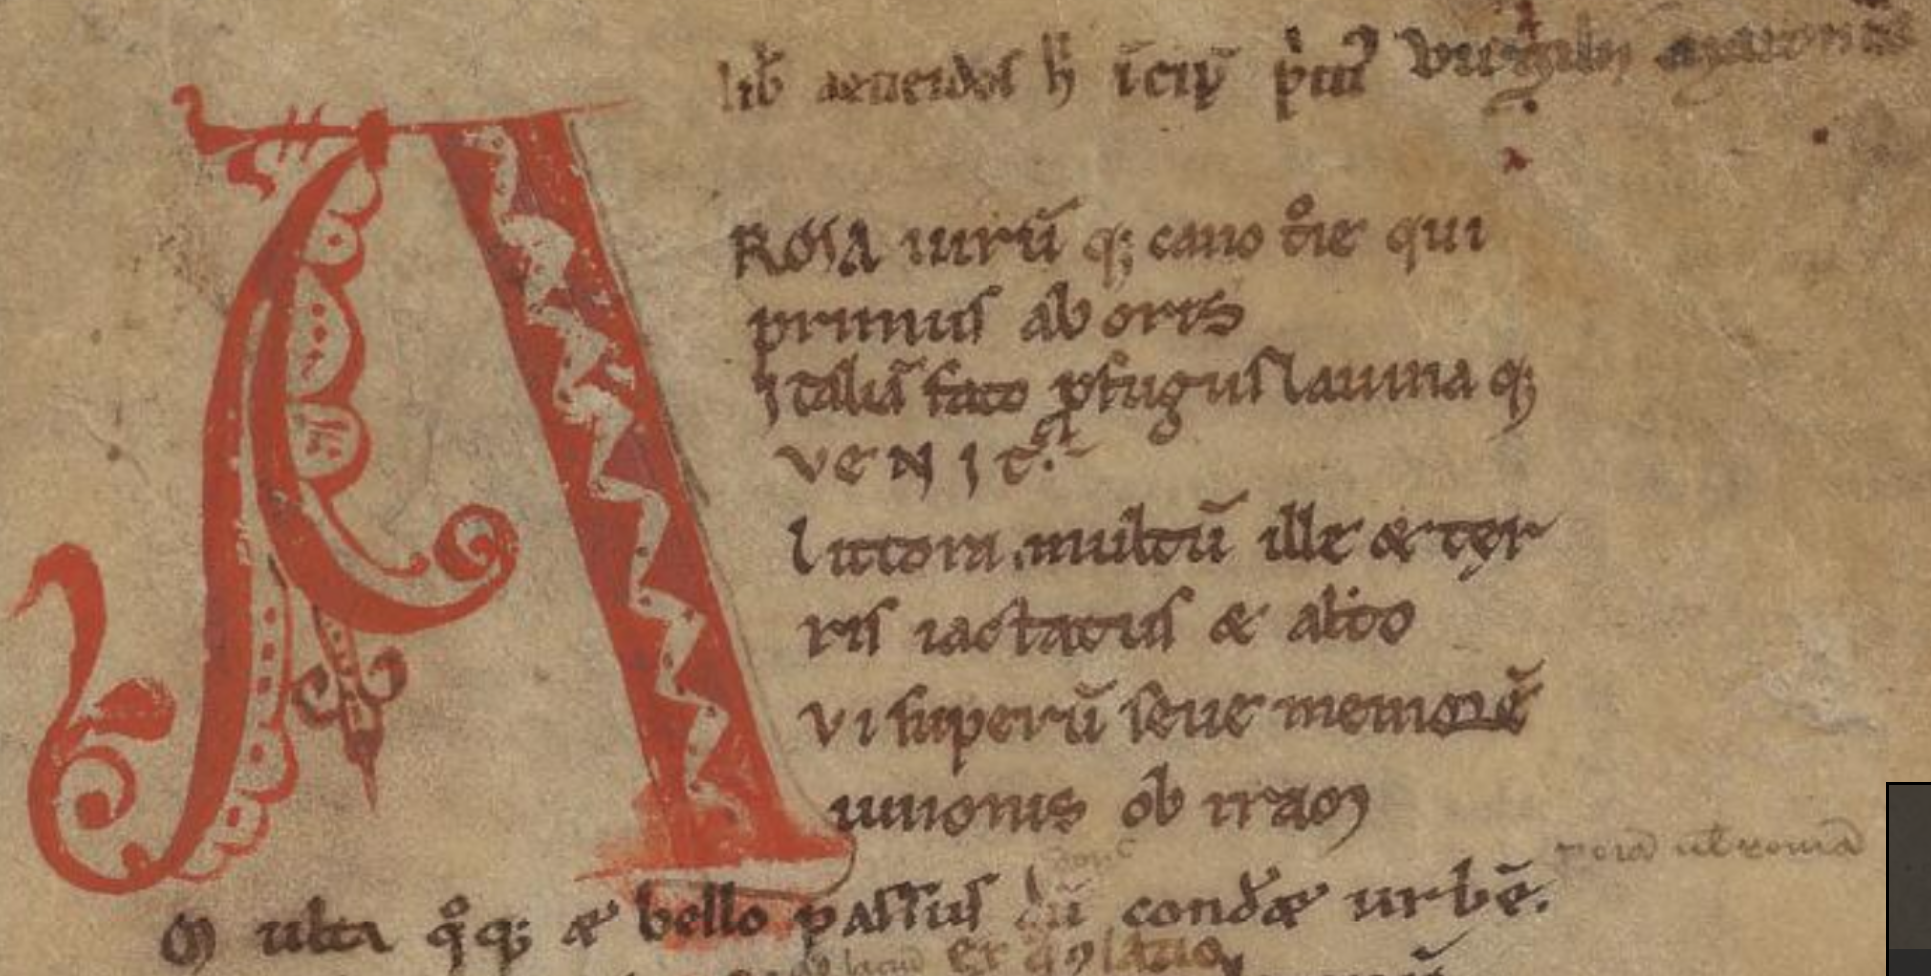 lib̄ aeneidos h̄ īcip̄ p̄im' virgilii maronis
A
ROSA uirū q; cano t̊ie qui
primus ab oris
ytaliā fato ꝓfugus lauina q;
VENIT.
littora. multū ille & ter
ris iactatus & alto
vi superū seue memorē
iunonis ob iraꝫ
troiā ul̄ romā
Multa q̊q; & bello passus dū condæ urbē.